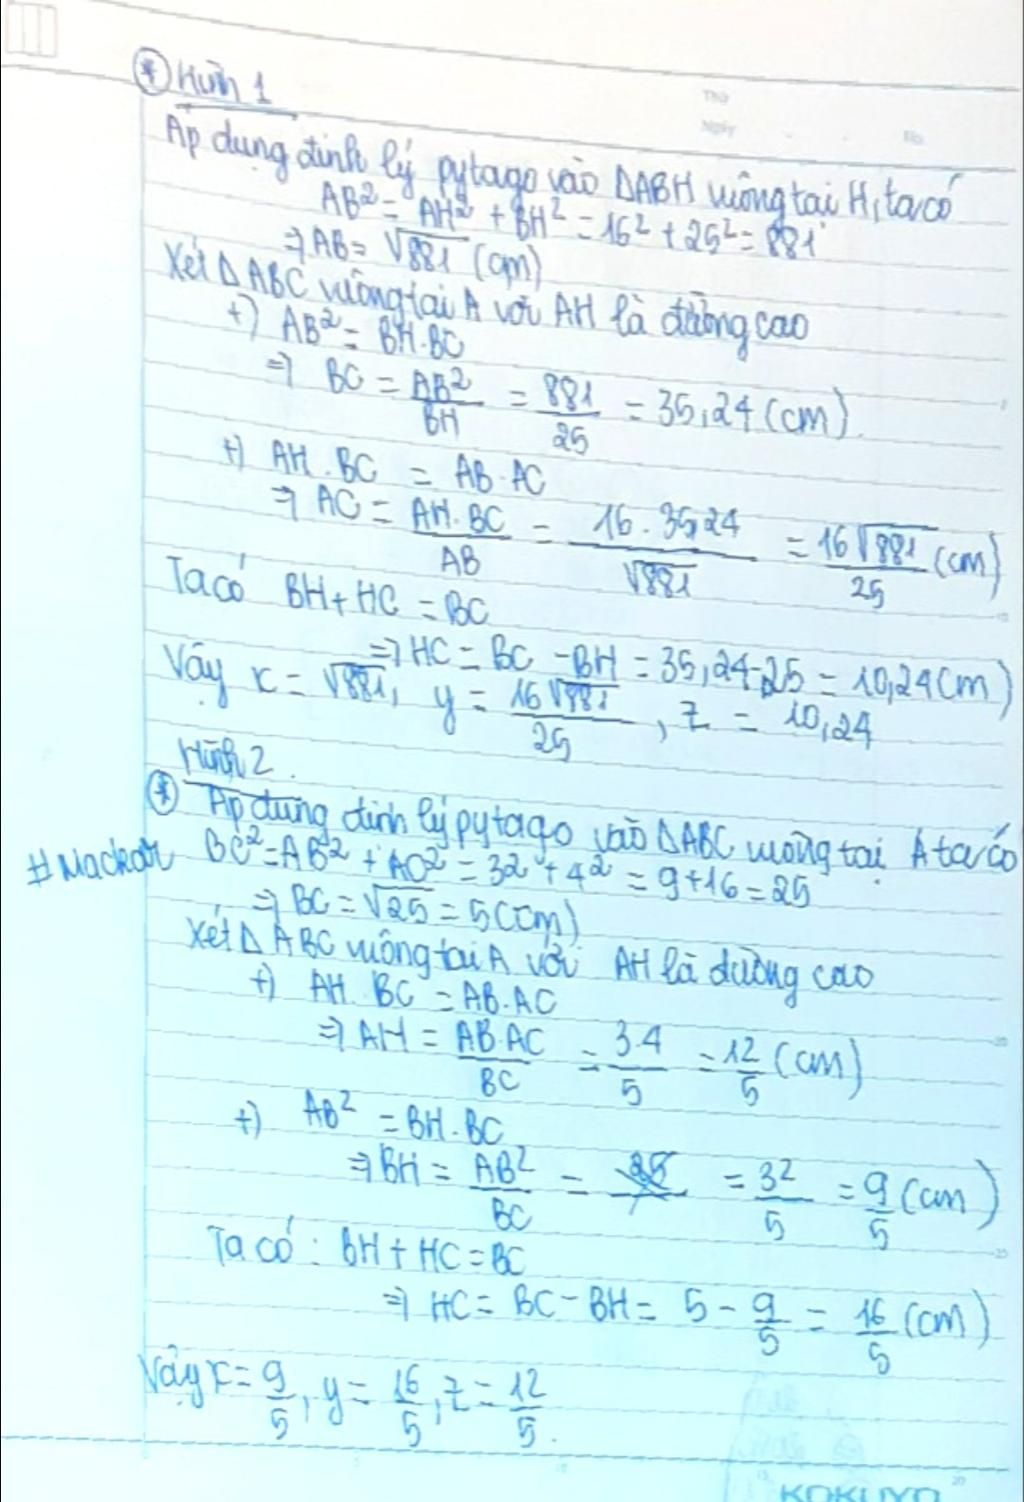 * Hình 1
Thứ
Ngày No.
Áp dụng định lý pytago vào ΔABH vuông tại H, ta có
AB² = AH² + BH² = 16² + 25² = 881
⇒ AB = √881 (cm)
Xét Δ ABC vuông tại A với AH là đường cao
+) AB² = BH.BC
⇒ BC = AB²/BH = 881/25 = 35,24 (cm).
+) AH.BC = AB.AC
⇒ AC = AH.BC/AB = 16.35,24/√881 = 16√881/25 (cm)
Ta có BH + HC = BC
⇒ HC = BC - BH = 35,24 - 25 = 10,24 (cm)
Vậy x = √881, y = 16√881/25, z = 10,24
Hình 2.
* Áp dụng định lý pytago vào ΔABC vuông tại A ta có
#Mackar BC² = AB² + AC² = 3² + 4² = 9 + 16 = 25
⇒ BC = √25 = 5 (cm)
Xét Δ ABC vuông tại A với AH là đường cao
+) AH.BC = AB.AC
⇒ AH = AB.AC/BC = 3.4/5 = 12/5 (cm)
+) AB² = BH.BC
⇒ BH = AB²/BC = = 3²/5 = 9/5 (cm)
Ta có : BH + HC = BC
⇒ HC = BC - BH = 5 - 9/5 = 16/5 (cm)
Vậy x = 9/5, y = 16/5, z = 12/5.
KOKUYO